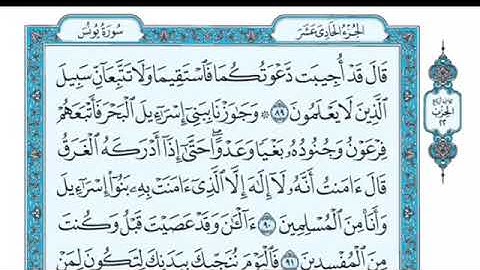 الجُزْءُ الحَادِى عَشَرَ
سُورَةُ يُونُسَ
قَالَ قَدْ أُجِيبَت دَّعْوَتُكُمَا فَٱسْتَقِيمَا وَلَا تَتَّبِعَآنِّ سَبِيلَ
ٱلَّذِينَ لَا يَعْلَمُونَ ٨٩ ۞ وَجَٰوَزْنَا بِبَنِىٓ إِسْرَٰٓءِيلَ ٱلْبَحْرَ فَأَتْبَعَهُمْ
فِرْعَوْنُ وَجُنُودُهُۥ بَغْيًا وَعَدْوًا ۖ حَتَّىٰٓ إِذَآ أَدْرَكَهُ ٱلْغَرَقُ
قَالَ ءَامَنتُ أَنَّهُۥ لَآ إِلَٰهَ إِلَّا ٱلَّذِىٓ ءَامَنَتْ بِهِۦ بَنُوٓا۟ إِسْرَٰٓءِيلَ
وَأَنَا۠ مِنَ ٱلْمُسْلِمِينَ ٩٠ ءَآلْـَٰٔنَ وَقَدْ عَصَيْتَ قَبْلُ وَكُنتَ
مِنَ ٱلْمُفْسِدِينَ ٩١ فَٱلْيَوْمَ نُنَجِّيكَ بِبَدَنِكَ لِتَكُونَ لِمَنْ
الحِزْب